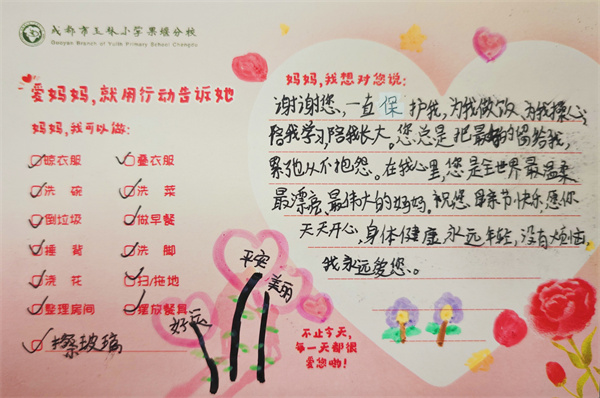 成都市玉林小学果堰分校
Guoyan Branch of Yulin Primary School Chengdu
爱妈妈,就用行动告诉她
妈妈,我可以做:
晾衣服 叠衣服
洗碗 洗菜
倒垃圾 做早餐
捶背 洗脚
浇花 扫/拖地
整理房间 摆放餐具
擦玻璃
平安
美丽
好运
不止今天,
每一天都很
爱您哟!
妈妈,我想对您说:
谢谢您,一直保护我,为我做饭,为我操心,
陪我学习,陪我长大。您总是把最好的留给我,
累了也从不抱怨。在我心里,您是全世界最温柔
最漂亮、最伟大的妈妈。祝您母亲节快乐,愿你
天天开心,身体健康永远年轻,没有烦恼
我永远爱您。